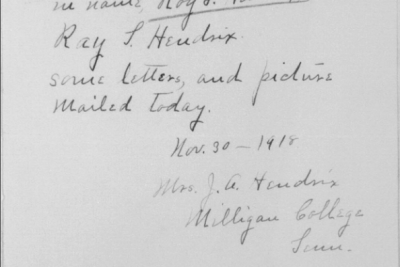 name, Roy S.
Ray S. Hendrix.
some letters, and picture
mailed today.
Nov. 30 - 1918
Mrs. J. A. Hendrix
Milligan College
Tenn.